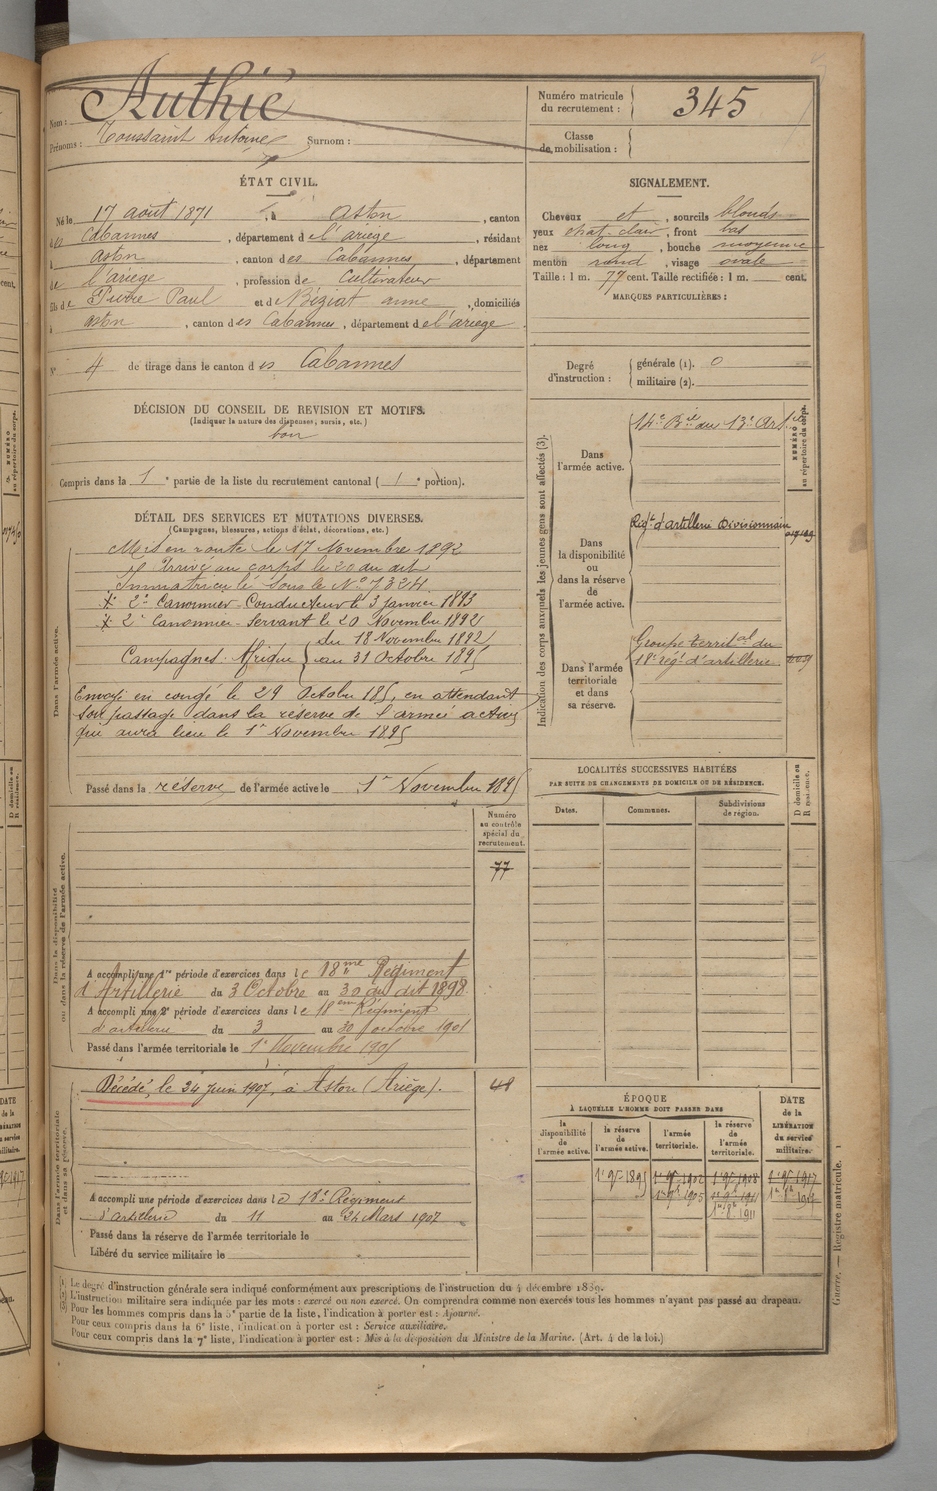 Nom : Authié
Prénoms : Toussaint Antoine Surnom :
Numéro matricule du recrutement : 345
Classe de mobilisation :
ÉTAT CIVIL.
Né le 17 août 1871, à Aston, canton
des Cabannes, département de l'ariège, résidant
à aston, canton des Cabannes, département
de l'ariège, profession de Cultivateur
fils de Pierre Paul et de Béziat anne, domiciliés
à aston, canton des Cabannes, département de l'ariège.
N° 4 de tirage dans le canton des Cabannes
SIGNALEMENT.
Cheveux et, sourcils blonds
yeux chat. clair, front bas
nez long, bouche moyenne
menton rond, visage ovale
Taille : 1 m. 77 cent. Taille rectifiée : 1 m. cent.
MARQUES PARTICULIÈRES :
Degré d'instruction : générale (1). 0
militaire (2).
DÉCISION DU CONSEIL DE REVISION ET MOTIFS.
(Indiquer la nature des dispenses, sursis, etc.)
bon
Compris dans la 1e partie de la liste du recrutement cantonal ( 1e portion).
DÉTAIL DES SERVICES ET MUTATIONS DIVERSES.
(Campagnes, blessures, actions d'éclat, décorations, etc.)
Dans l'armée active.
Mis en route le 17 Novembre 1892
Arrivé au corps le 20 du dit
Immatriculé sous le N° 7324.
2e Canonnier Conducteur le 3 janvier 1893
2e Canonnier Servant le 20 Novembre 1892
Campagnes : Afrique du 18 Novembre 1892
au 31 Octobre 1895
Envoyé en congé le 29 Octobre 185, en attendant
son passage dans la réserve de l'armée active
qui aura lieu le 1er Novembre 1895
Passé dans la réserve de l'armée active le 1er Novembre 1895
Indication des corps auxquels les jeunes gens sont affectés (3).
NUMÉRO au répertoire du corps.
Dans l'armée active.
14e Bie du 13e Art
Dans la disponibilité ou dans la réserve de l'armée active.
Régt d'artillerie Divisionnaire
Dans l'armée territoriale et dans sa réserve.
Groupe territal du
18e régt d'artillerie
LOCALITÉS SUCCESSIVES HABITÉES
PAR SUITE DE CHANGEMENTS DE DOMICILE OU DE RÉSIDENCE.
Dates. Communes. Subdivisions de région. D domicile ou R résidence.
Dans la disponibilité ou dans la réserve de l'armée active.
Numéro au contrôle spécial du recrutement.
77
A accompli une 1re période d'exercices dans le 18me Régiment
d'Artillerie du 3 Octobre au 30 du dit 1898
A accompli une 2e période d'exercices dans le 18eme Régiment
d'artillerie du 3 au 30 octobre 1901
Passé dans l'armée territoriale le 1er Novembre 1905
Dans l'armée territoriale et dans sa réserve.
Décédé, le 24 juin 1907, à Aston (Ariège).
48
A accompli une période d'exercices dans le 18e Régiment
d'artillerie du 11 au 24 Mars 1907
Passé dans la réserve de l'armée territoriale le
Libéré du service militaire le
ÉPOQUE
À LAQUELLE L'HOMME DOIT PASSER DANS
la disponibilité de l'armée active. la réserve de l'armée active. l'armée territoriale. la réserve de l'armée territoriale.
DATE de la LIBÉRATION du service militaire.
1r 9e 1895 1r 9e 1902 1r 9e 1908 1r 9e 1917
1r 9e 1905 1r 9e 1911
1r 8e 1911
(1) Le degré d'instruction générale sera indiqué conformément aux prescriptions de l'instruction du 4 décembre 1889.
(2) L'instruction militaire sera indiquée par les mots : exercé ou non exercé. On comprendra comme non exercés tous les hommes n'ayant pas passé au drapeau.
(3) Pour les hommes compris dans la 5e partie de la liste, l'indication à porter est : Ajourné.
Pour ceux compris dans la 6e liste, l'indication à porter est : Service auxiliaire.
Pour ceux compris dans la 7e liste, l'indication à porter est : Mis à la disposition du Ministre de la Marine. (Art. 4 de la loi.)
Guerre. — Registre matricule. 1